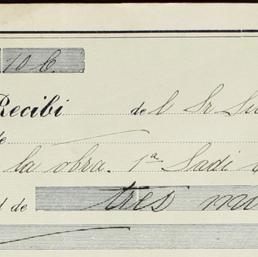 10 6.
Recibí del Sr
de
la obra. 1ª Sadi
d de tres